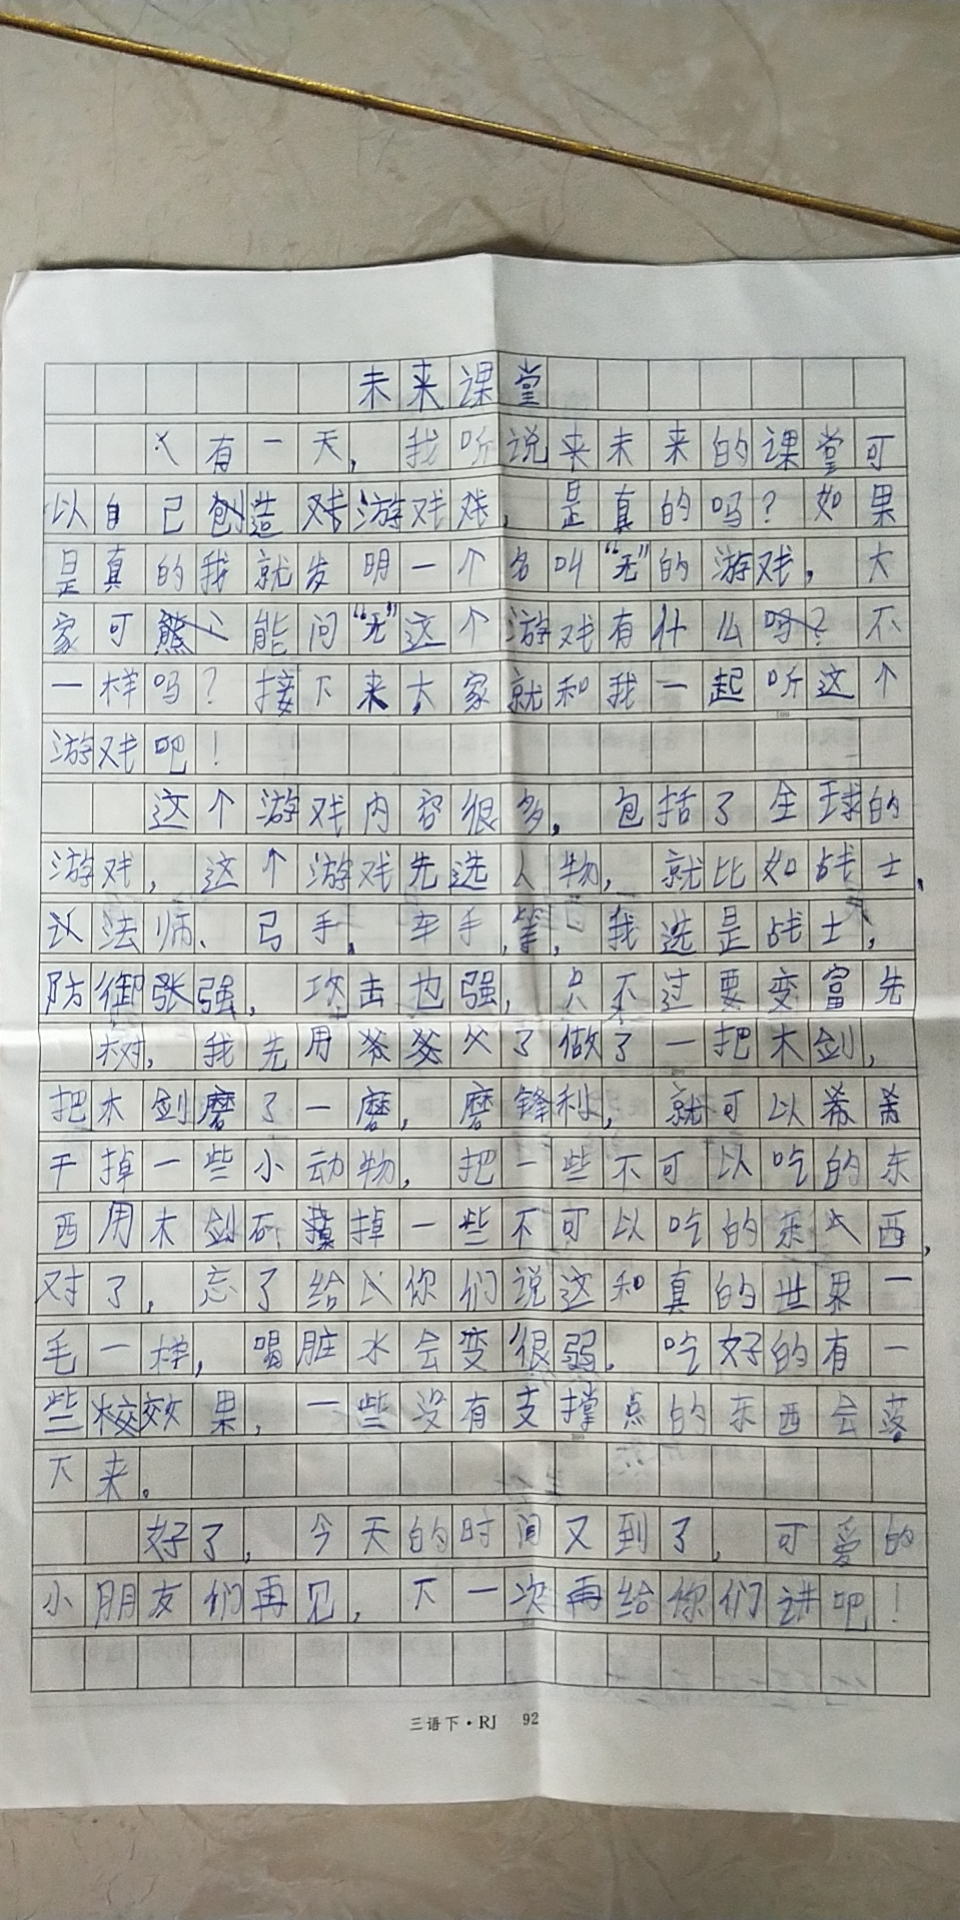 未来课堂
有一天，我听说来未来的课堂可
以自己创造戏游戏戏，是真的吗？如果
是真的我就发明一个名叫“无”的游戏，大
家可能问“无”这个游戏有什么吗？不
一样吗？接下来大家就和我一起听这个
游戏吧！
这个游戏内容很多，包括了全球的
游戏，这个游戏先选人物，就比如战士、
法师、弓手，牵手，等，我选是战士，
防御张强，攻击也强，只不过要变富先
树，我先用了做了一把木剑，
把木剑磨了一磨，磨锋利，就可以
干掉一些小动物，把一些不可以吃的东
西用木剑砍掉一些不可以吃的东西，
对了，忘了给你们说这和真的世界一
毛一样，喝脏水会变很弱，吃好的有一
些效果，一些没有支撑点的东西会落
下来。
好了，今天的时间又到了，可爱的
小朋友们再见，下一次再给你们讲吧！
三语下·RJ 92